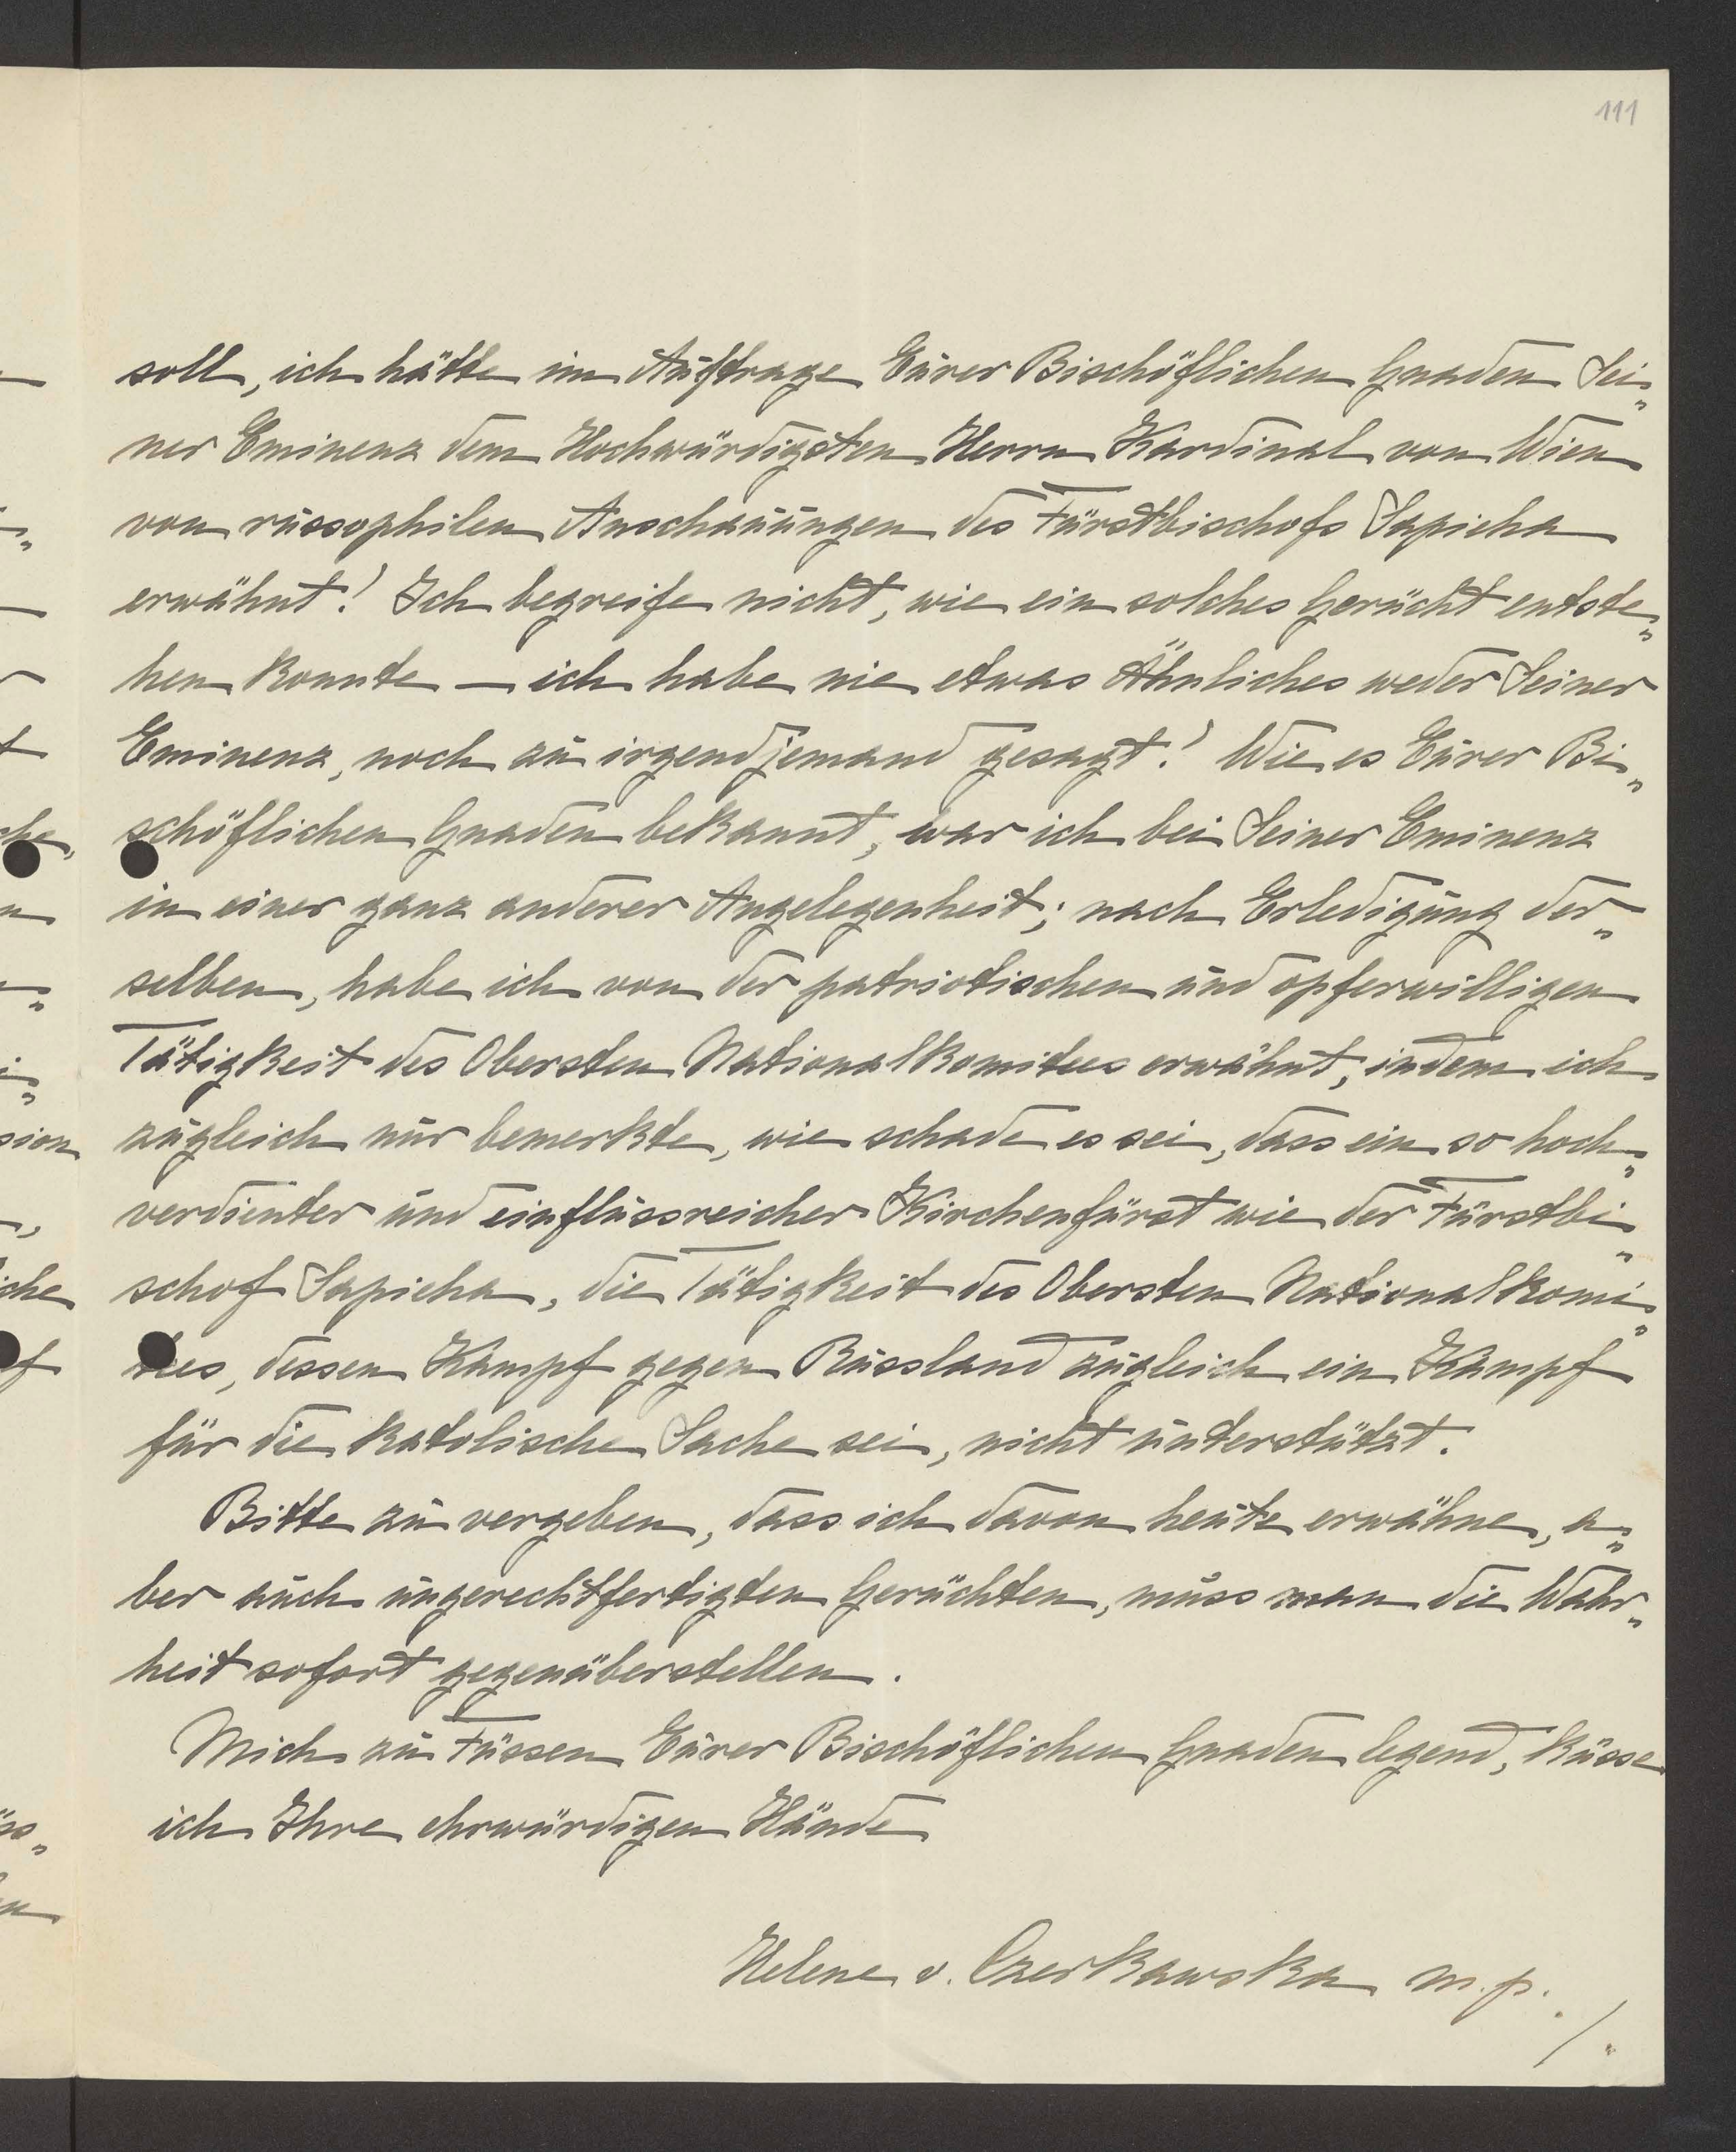 111
soll, ich hätte im Auftrage Eurer Bischöflichen Gnaden Sei„
ner Eminenz dem Hochwürdigsten Herrn Kardinal von Wien
von russophilen Anschauungen des Fürstbischofs Sapieha
erwähnt! Ich begreife nicht, wie ein solches Gerücht entste„
hen konnte — ich habe nie etwas Ähnliches weder Seiner
Eminenz, noch zu irgendjemand gesagt! Wie es Eurer Bi„
schöflichen Gnaden bekannt, war ich bei Seiner Eminenz
in einer ganz anderer Angelegenheit; nach Erledigung der„
selben, habe ich von der patriotischen und opferwilligen
Tätigkeit des Obersten Nationalkomitees erwähnt, indem ich
zugleich nur bemerkte, wie schade es sei, dass ein so hoch„
verdienter und einflussreicher Kirchenfürst wie der Fürstbi„
schof Sapieha, die Tätigkeit des Obersten Nationalkomi„
tees, dessen Kampf gegen Russland zugleich ein Kampf
für die katolische Sache sei, nicht unterstützt.
Bitte zu vergeben, dass ich davon heute erwähne, a„
ber auch ungerechtfertigten Gerüchten, muss man die Wahr„
heit sofort gegenüberstellen.
Mich zu Füssen Eurer Bischöflichen Gnaden legend, küsse
ich Ihre ehrwürdigen Hände
Helene v. Czerkawska m.p.
./.